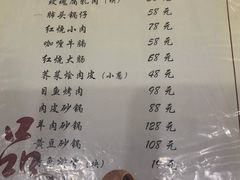 玫瑰腐乳肉 58元
肺头锅仔 58元
红烧小肉 78元
咖喱牛腩 58元
红烧大肠 68元
荠菜烩肉皮（小葱） 48元
目鱼烤肉 98元
肉皮砂锅 88元
羊肉砂锅 128元
黄豆砂锅 108元
品